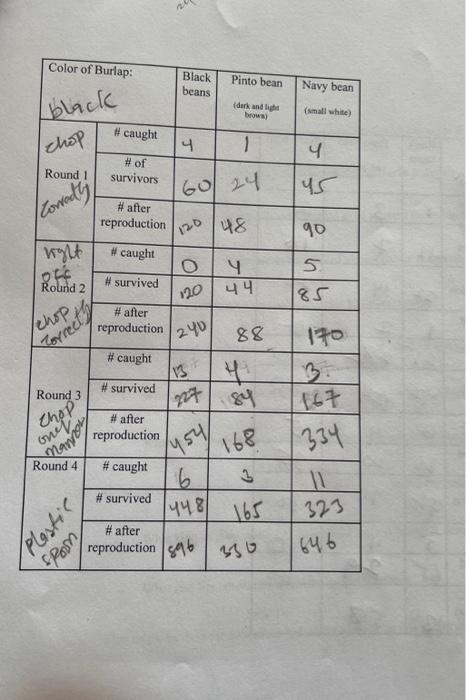 Color of Burlap: Black beans Pinto bean (dark and light brown) Navy bean (small white)
black
chop # caught 4 1 4
Round 1 # of survivors 60 24 45
correctly # after reproduction 120 48 90
# caught 0 4 5
Round 2 # survived 120 44 85
chop correctly # after reproduction 240 88 170
# caught 13 4 3
Round 3 # survived 227 84 167
chop # after reproduction 454 168 334
Round 4 # caught 6 3 11
# survived 448 165 323
plastic spoon # after reproduction 896 330 646